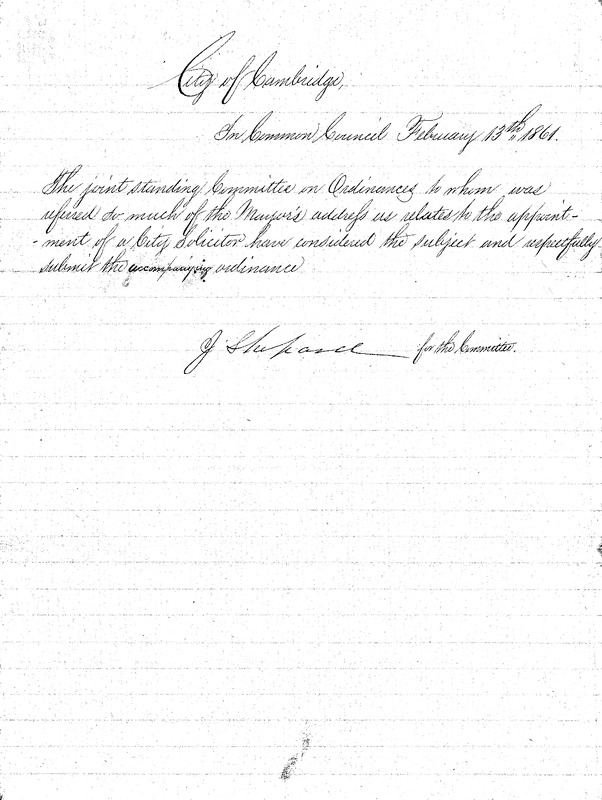 City of Cambridge,
In Common Council February 13th, 1861.
The joint standing Committee on Ordinances to whom was
refered so much of the Mayor's address as relates to the appoint-
-ment of a City Solicitor have considered the subject and respectfully
submit the accompanying ordinance
J Shepard for the Committee.